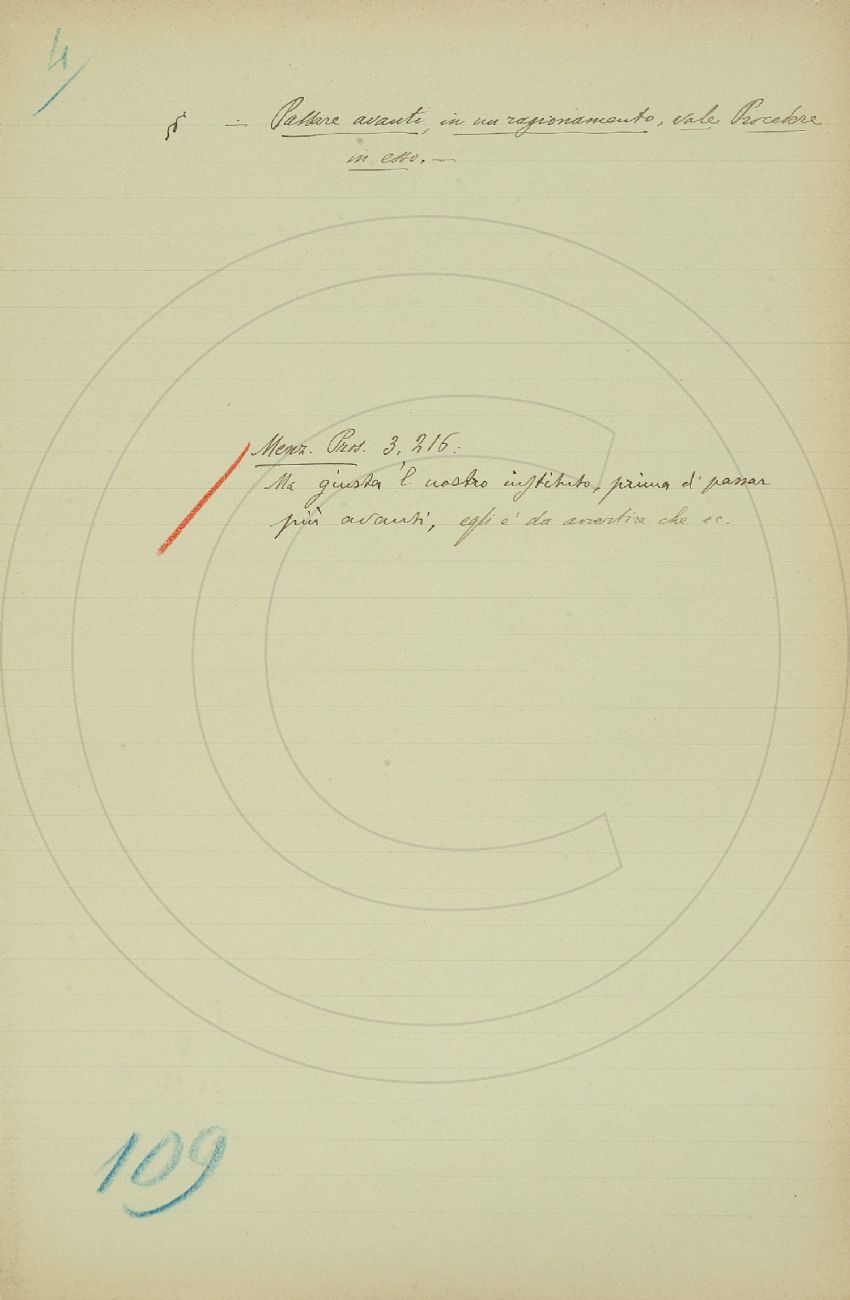 4
§ — Passare avanti, in un ragionamento, vale Procedere
in esso. —
Menz. Pros. 3, 216:
Ma giusta 'l nostro instituto, prima di passar
più avanti, egli è da avvertire che ec.
109